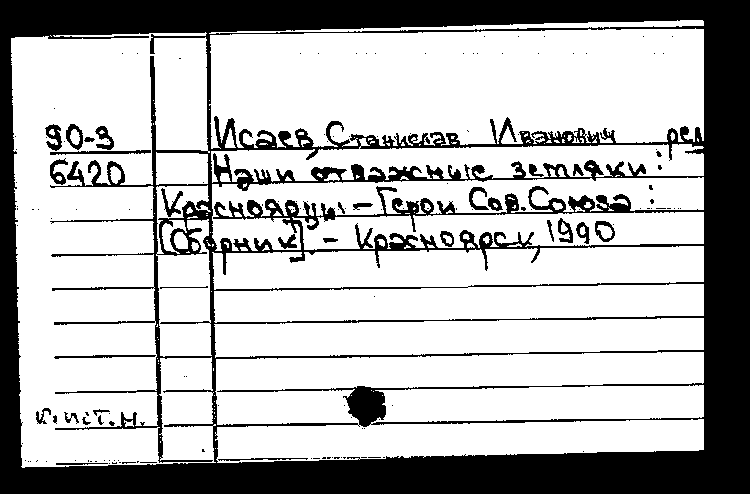 90-3 Исаев, Станислав Иванович ред
6420 Наши отважные земляки:
Красноярцы - Герои Сов. Союза :
[Сборник]. - Красноярск, 1990
к.ист.н.